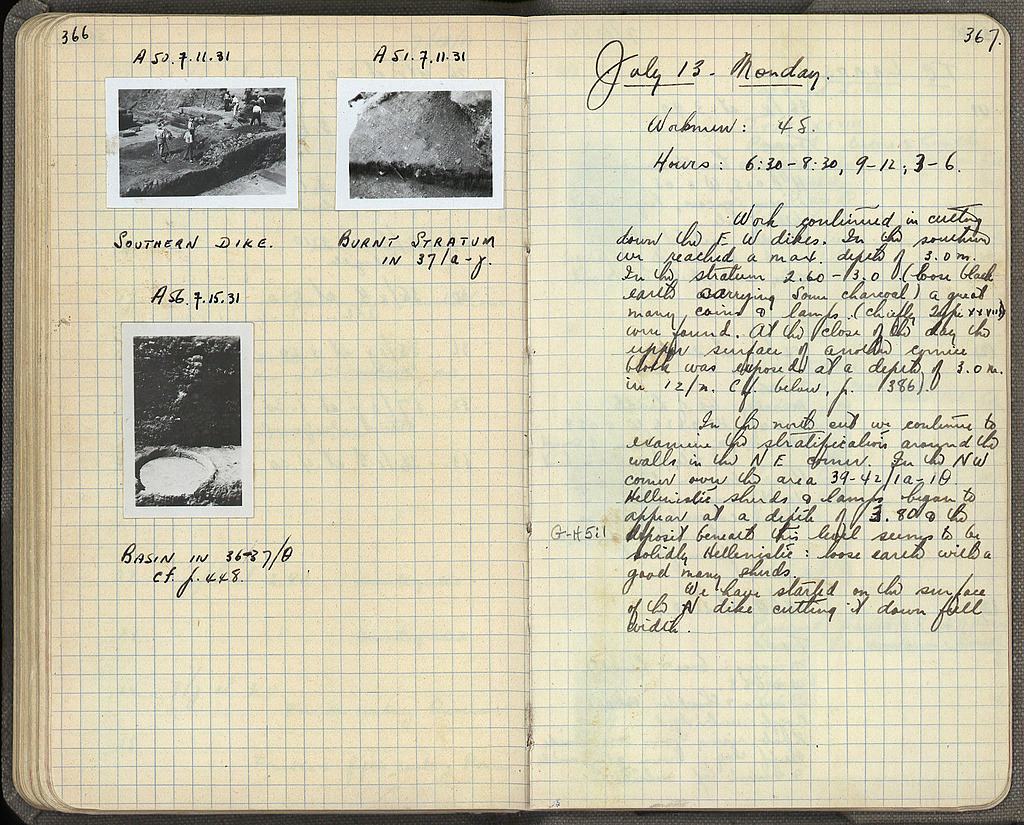 366
A 50. 7.11.31
A 51. 7.11.31
SOUTHERN DIKE.
BURNT STRATUM
IN 37/a-γ.
A 56. 7.15.31
BASIN IN 36-37/Θ
cf. p. 448.
367.
July 13 - Monday.
Workmen: 45.
Hours: 6:30-8:30, 9-12; 3-6.
Work continued in cutting
down the E W dikes. In the southern
we reached a max. depth of 3.0 m.
In the stratum 2.60-3.0 (loose black
earth carrying some charcoal) a great
many coins & lamps (chiefly Type XXVIII)
were found. At the close of the day the
upper surface of another cornice
block was exposed at a depth of 3.0 m.
in 12/n. Cf. below, p. 386).
In the north cut we continue to
examine the stratification around the
walls in the N E corner. In the NW
corner over the area 39-42/1a-1Θ
Hellenistic sherds & lamps began to
appear at a depth of 3.80 & the
G-H 5:1
deposit beneath this level seems to be
solidly Hellenistic: loose earth with a
good many sherds.
We have started on the surface
of the N dike cutting it down full
width.